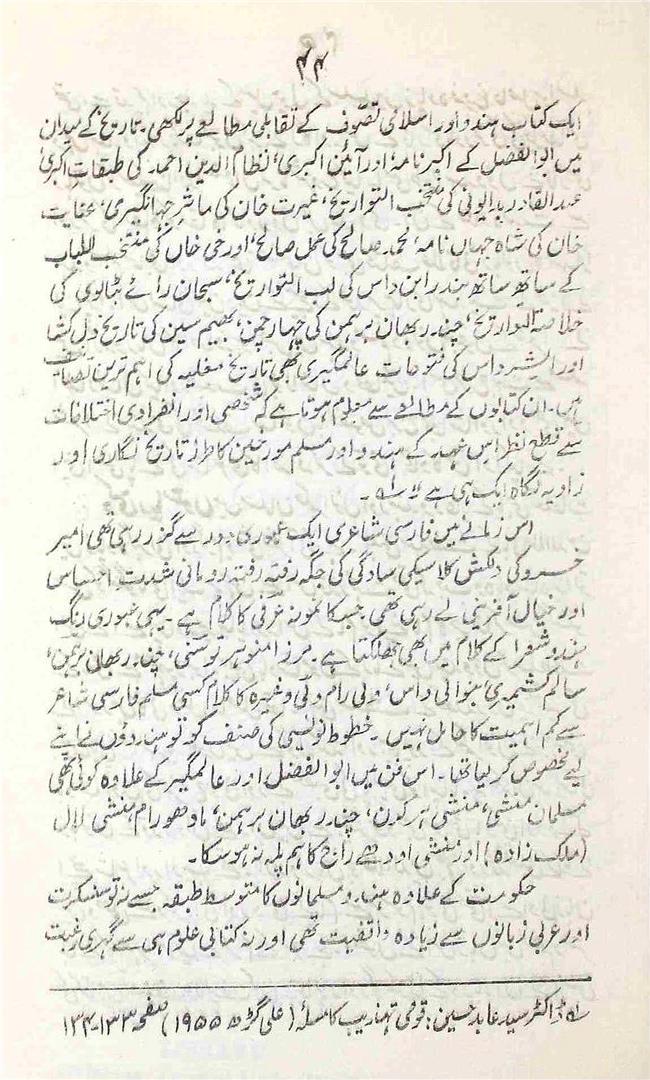 ۴۴
ایک کتاب ہندو اور اسلامی تصوّف کے تقابلی مطالعے پر لکھی۔ تاریخ کے میدان
میں ابوالفضل کے اکبر نامہ اور آئین اکبری، نظام الدین احمد کی طبقات اکبری
عبدالقادر بدایونی کی منتخب التواریخ، غیرت خان کی ماثر جہانگیری، عنایت
خان کی شاہ جہاں نامہ، محمد صالح کی عمل صالح، اور خی خاں کی منتخب اللباب
کے ساتھ ساتھ بندرابن داس کی لب التواریخ، سبحان رائے بٹالوی کی
خلاصۃ التواریخ، چندر بھان برہمن کی چہار چمن، بھیم سین کی تاریخ دل کشا
اور الیشر داس کی فتوحات عالمگیری بھی تاریخ مغلیہ کی اہم ترین تصانیف
ہیں۔ ان کتابوں کے مطالعے سے معلوم ہوتا ہے کہ شخصی اور انفرادی اختلافات
سے قطع نظر اس عہد کے ہندو اور مسلم مورخین کا طرز تاریخ نگاری اور
زاویہ نگاہ ایک ہی ہے ؎۱۔
اس زمانے میں فارسی شاعری ایک عبوری دور سے گزر رہی تھی امیر
خسرو کی دلکش کلاسیکی سادگی کی جگہ رفتہ رفتہ رومانی شدت احساس
اور خیال آفرینی لے رہی تھی جس کا نمونہ عرفی کا کلام ہے۔ یہی عبوری رنگ
ہندو شعرا کے کلام میں بھی جھلکتا ہے۔ مرزا منوہر توسنی، چندر بھان برہمن،
سالم کشمیری، بنوالی داس، ولی رام ولی وغیرہ کا کلام کسی مسلم فارسی شاعر
سے کم اہمیت کا حامل نہیں۔ خطوط نویسی کی صنف کو تو ہندوؤں نے اپنے
لیے مخصوص کر لیا تھا۔ اس فن میں ابوالفضل اور عالمگیر کے علاوہ کوئی بھی
مسلمان منشی، منشی ہرکرن، چندر بھان برہمن، مادھو رام، منشی لال
(ملک زادہ) اور منشی اودھے راج کا ہم پلہ نہ ہو سکا۔
حکومت کے علاوہ ہندو مسلمانوں کا متوسط طبقہ جسے نہ تو سنسکرت
اور عربی زبانوں سے زیادہ واقفیت تھی اور نہ کتابی علوم ہی سے گہری رغبت
؎۱ ڈاکٹر سید عابد حسین: قومی تہذیب کا مسئلہ (علی گڑھ ۱۹۵۵) صفحہ ۱۳۳-۱۳۴